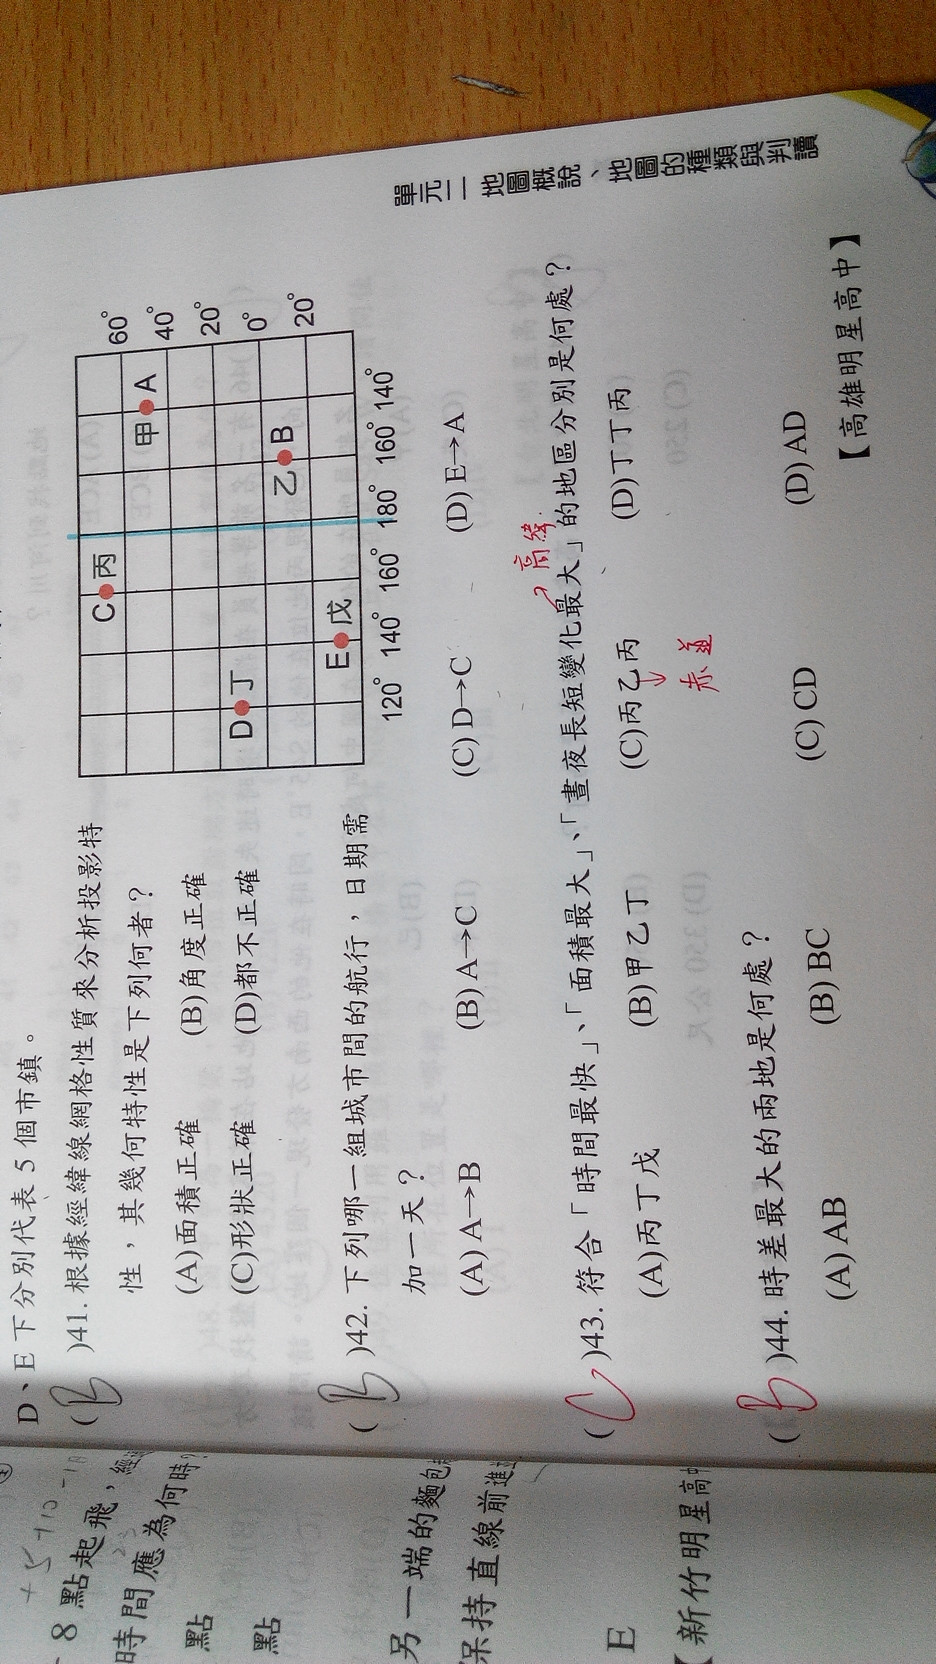 單元二 地圖概說、地圖的種類與判讀
D、E下分別代表5個市鎮。
(B)41. 根據經緯線網格性質來分析投影特
性，其幾何特性是下列何者？
(A)面積正確 (B)角度正確
(C)形狀正確 (D)都不正確
C 丙
甲 A
D 丁
乙 B
E 戊
60°
40°
20°
0°
20°
120° 140° 160° 180° 160° 140°
(B)42. 下列哪一組城市間的航行，日期需
加一天？
(A) A→B (B) A→C (C) D→C (D) E→A
高緯
(C)43. 符合「時間最快」、「面積最大」、「晝夜長短變化最大」的地區分別是何處？
(A)丙丁戊 (B)甲乙丁 (C)丙乙丙 (D)丁丁丙
赤道
(B)44. 時差最大的兩地是何處？
(A) AB (B) BC (C) CD (D) AD
【高雄明星高中】
8 點起飛，
時間應為何時？
點
點
另一端的麵包
保持直線前進
E
【新竹明星高中